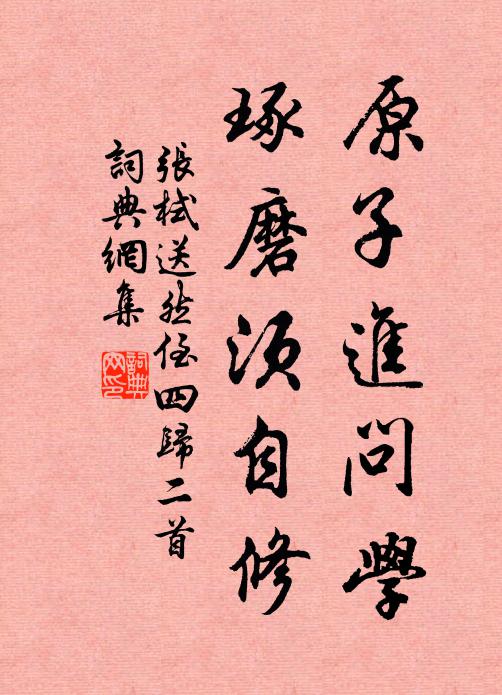 原子進問學
琢磨須自修
張栻送然侄四歸二首
詞典網集
詞典網印